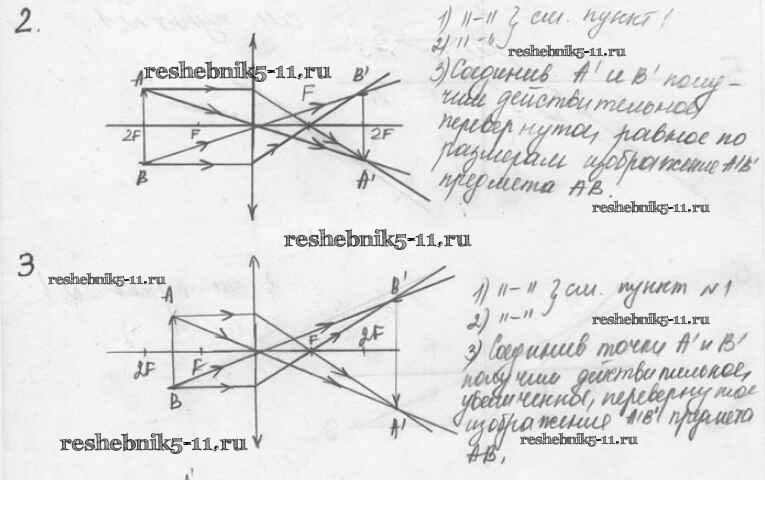 2.
1) "-" } см. пункт 1
2) "-"
reshebnik5-11.ru
reshebnik5-11.ru
3) Соединив A' и B' полу-
чим действительное,
перевернутое, равное по
размерам изображение A'B'
предмета AB.
reshebnik5-11.ru
A B' F
2F F 2F
B A'
reshebnik5-11.ru
3
reshebnik5-11.ru
A B'
2F F F 2F
B A'
1) "-" } см. пункт №1
2) "-"
reshebnik5-11.ru
3) Соединив точки A' и B'
получим действительное,
увеличенное, перевернутое
изображение A'B' предмета
reshebnik5-11.ru
AB,
reshebnik5-11.ru